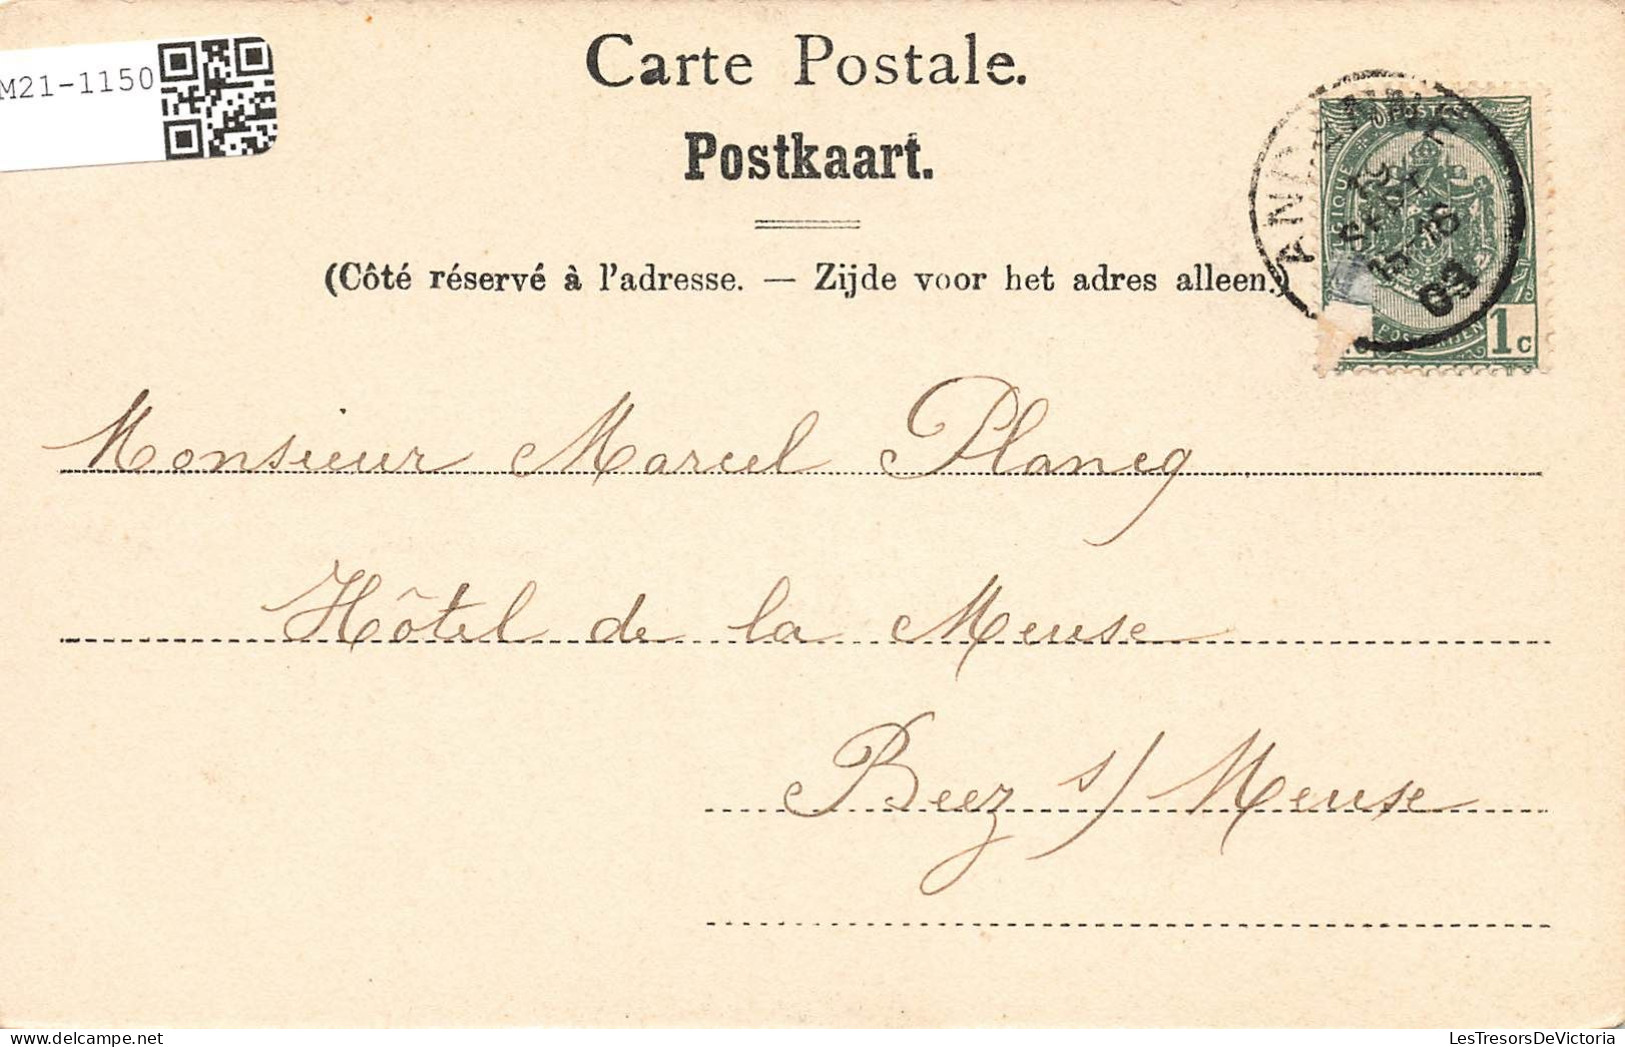 M21-1150
Carte Postale.
Postkaart.
(Côté réservé à l'adresse. — Zijde voor het adres alleen.)
POSTES
1c
09
Monsieur Marcel Plancq
Hôtel de la Meuse
Beez s/ Meuse
LesTresorsDeVictoria
www.delcampe.net